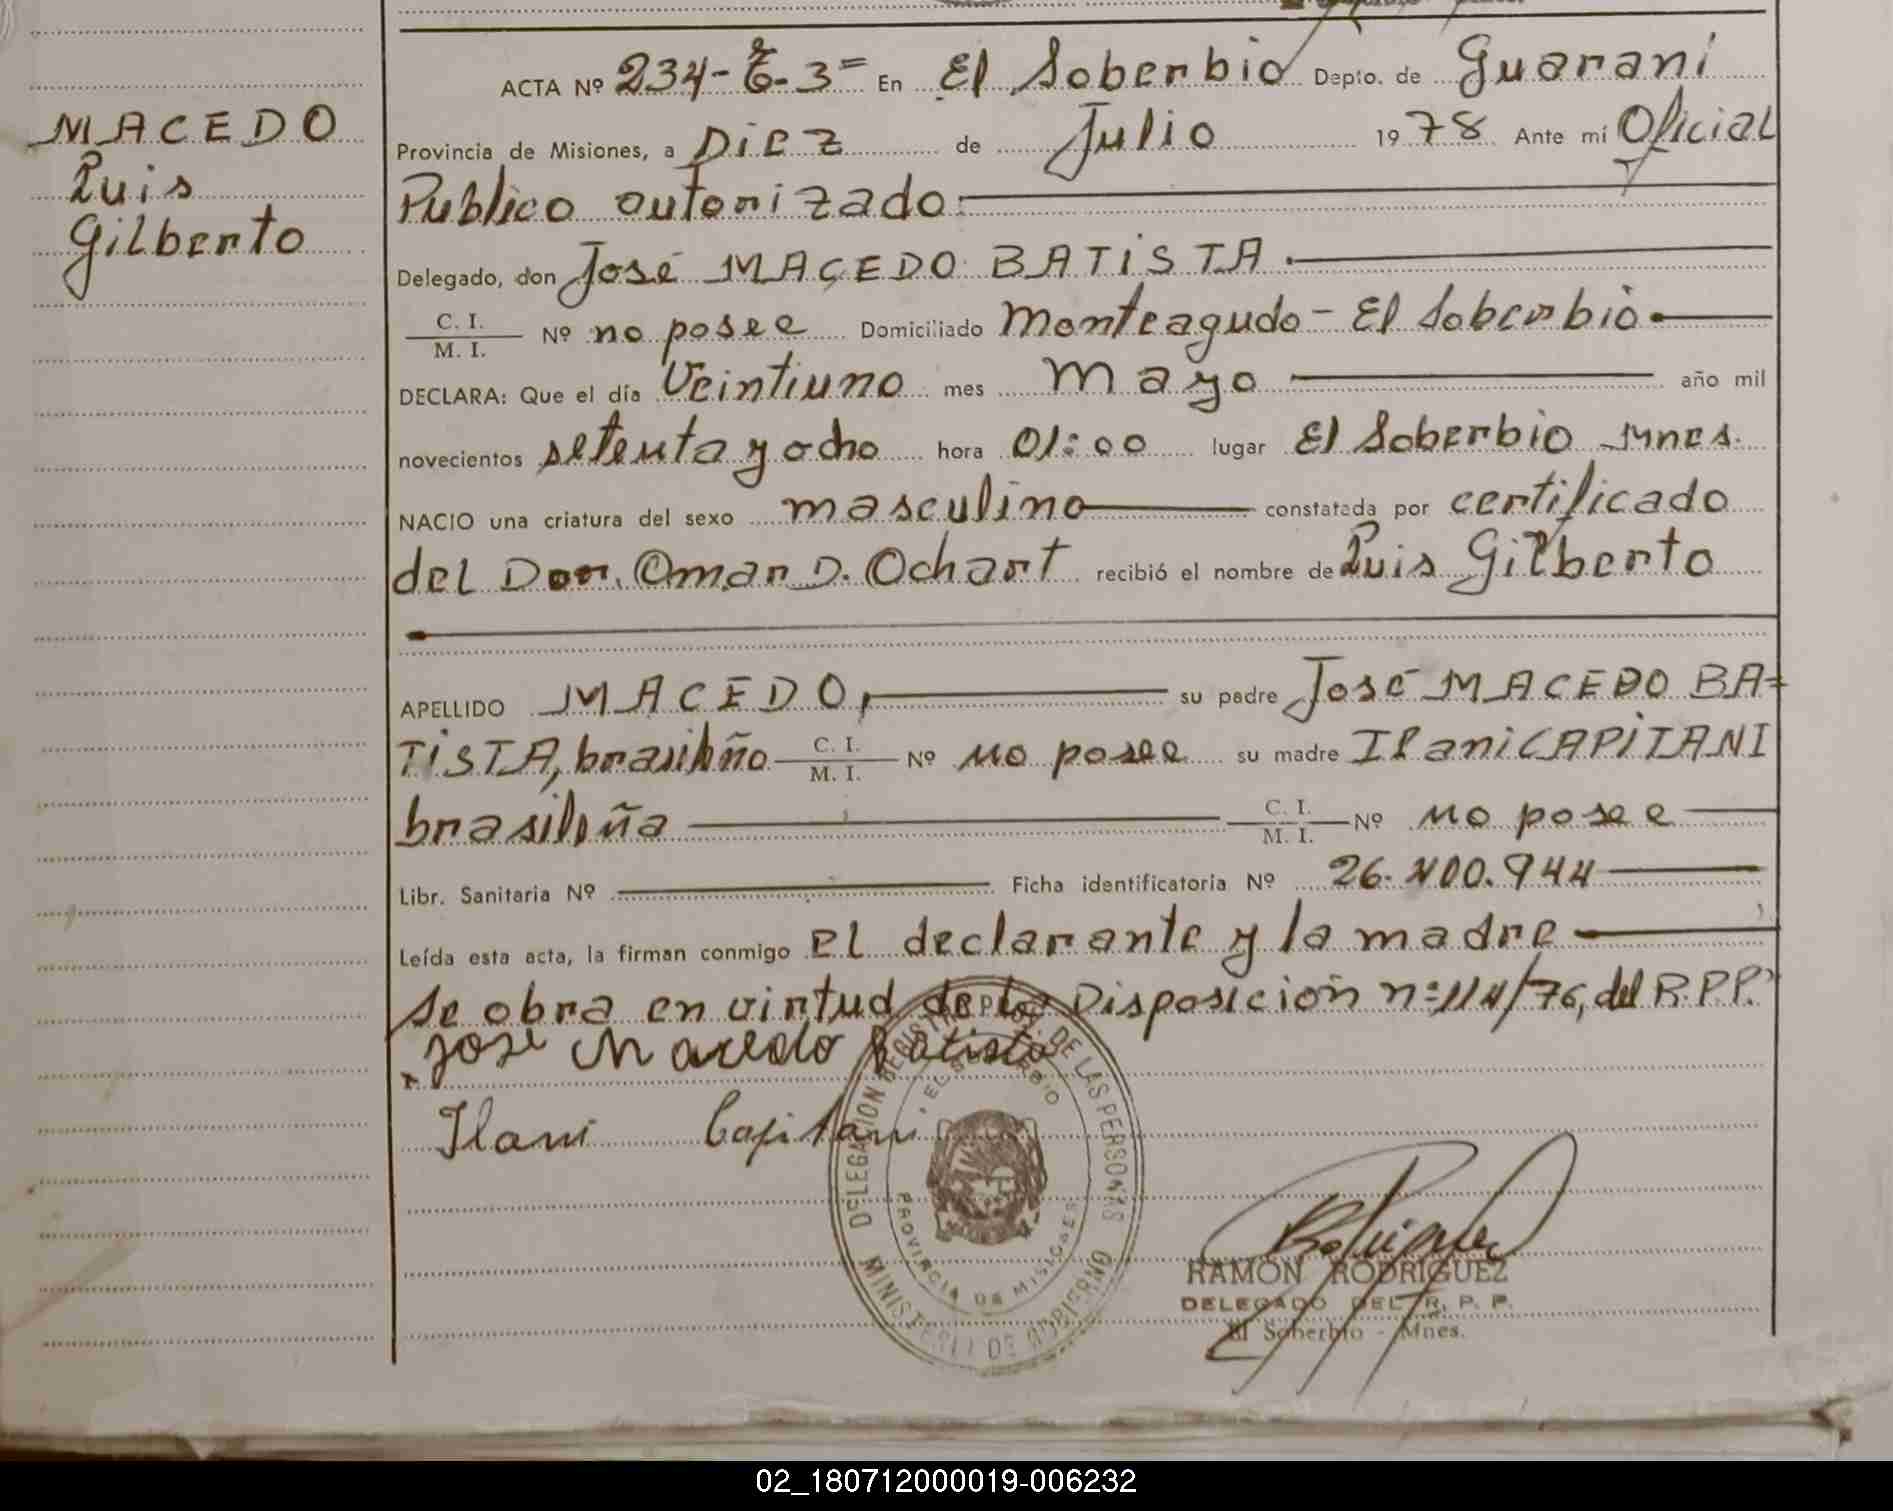 MACEDO
Luis
Gilberto
ACTA Nº 234- En El Soberbio Depto. de Guaraní
Provincia de Misiones, a Diez de Julio 1978 Ante mí Oficial
Publico autorizado
Delegado, don José MACEDO BATISTA.
C. I.
M. I. Nº no posee Domiciliado Monteagudo - El Soberbio
DECLARA: Que el día Veintiuno mes Mayo año mil
novecientos setenta y ocho hora 01:00 lugar El Soberbio Mnes.
NACIO una criatura del sexo masculino constatada por certificado
del Omar D. Ochart recibió el nombre de Luis Gilberto
APELLIDO MACEDO, su padre José MACEDO BA-
TISTA, brasileño C. I.
M. I. Nº no posee su madre Ilani CAPITANI
brasileña C. I.
M. I. Nº no posee
Libr. Sanitaria Nº Ficha identificatoria Nº 26.400.944
Leída esta acta, la firman conmigo el declarante y la madre
se obra en virtud de la Disposición nº 114/76, del R.P.P.
José Macedo Batista
Ilani Capitani
DELEGACION REGISTRO PROV. DE LAS PERSONAS
EL SOBERBIO
PROVINCIA DE MISIONES
MINISTERIO DE GOBIERNO
RAMON RODRIGUEZ
DELEGADO DEL R. P. P.
El Soberbio - Mnes.
02_180712000019-006232